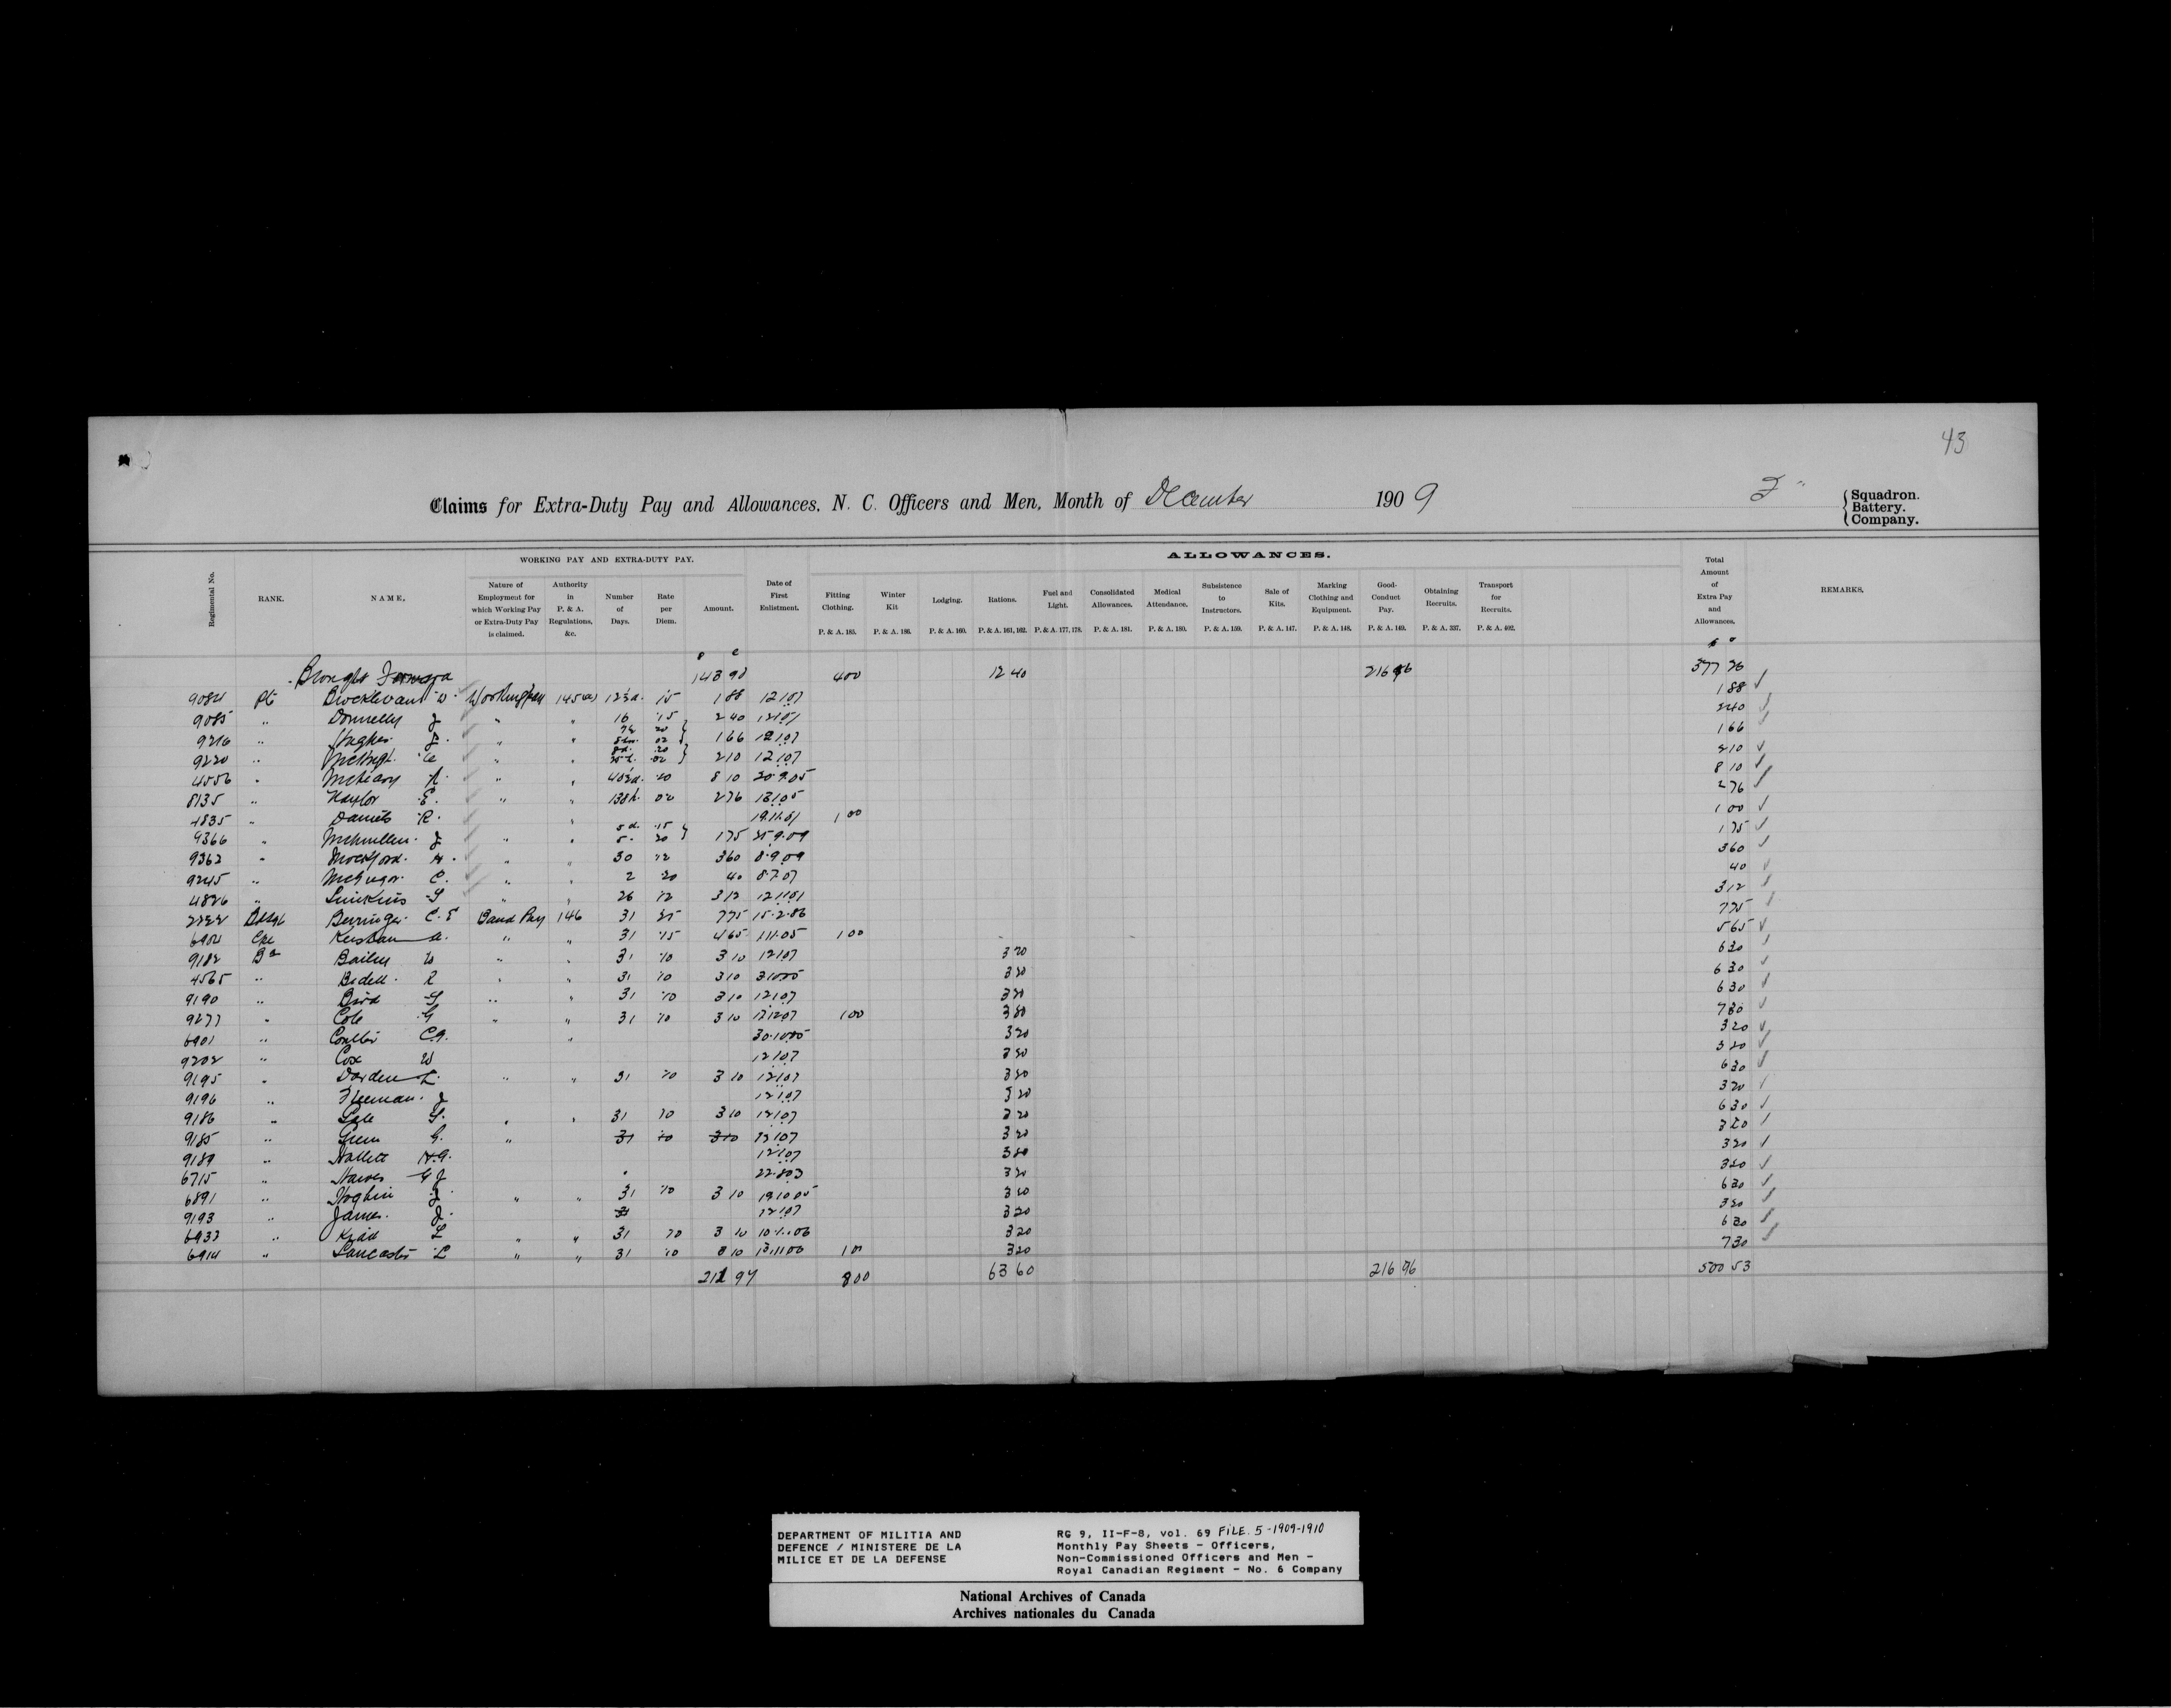 43
Claims for Extra-Duty Pay and Allowances, N. C. Officers and Men, Month of December 1909
Squadron.
Battery.
Company.
WORKING PAY AND EXTRA-DUTY PAY.
ALLOWANCES.
Regimental No.
RANK.
NAME.
Nature of Employment for which Working Pay or Extra-Duty Pay is claimed.
Authority in P. & A. Regulations, &c.
Number of Days.
Rate per Diem.
Amount.
Date of First Enlistment.
Fitting Clothing. P. & A. 185.
Winter Kit P. & A. 186.
Lodging. P. & A. 160.
Rations. P. & A. 161, 162.
Fuel and Light. P. & A. 177, 178.
Consolidated Allowances. P. & A. 181.
Medical Attendance. P. & A. 180.
Subsistence to Instructors. P. & A. 159.
Sale of Kits. P. & A. 147.
Marking Clothing and Equipment. P. & A. 148.
Good-Conduct Pay. P. & A. 149.
Obtaining Recruits. P. & A. 337.
Transport for Recruits. P. & A. 402.
Total Amount of Extra Pay and Allowances.
REMARKS.
$ c
Brought Forward 143 90 4 00 12 40 216 96 377 26
9084 Pte W. Working Pay 145(a) 12½d. 15 1 88 12.1.07 1 88
9085 " Donnelly J " " 16 .15 2 40 2 40
9216 " Hughes J. " " 1 66 12.1.07 1 66
9220 " " " 2 10 12.1.07 2 10
4556 " McLeary A. " " 40½d. .20 8 10 20.9.05 8 10
8135 " E. " " 138h. 02 2 76 2 76
4835 " Daniels R. " 1 00 1 00
9366 " McMullen J " " 5 d. .15 5 " 20 1 75 25.9.09 1 75
9362 " Mockford H. " " 30 12 3 60 8.9.09 3 60
9245 " McGregor C. " " 2 20 40 8.7.07 40
4826 " Simkins S " " 26 12 3 12 3 12
Berringer C. E Band Pay 146 31 25 7 75 15.2.86 7 75
6904 Cpl A. " " 31 15 4 65 1.11.05 1 00 5 65
9182 Bn Bailey W " " 31 10 3 10 12.1.07 3 20 6 30
4565 " Bedell R " " 31 10 3 10 3 20 6 30
9190 " Bird S " " 31 10 3 10 12.1.07 3 20 6 30
9277 " Cole G " " 31 10 3 10 1 00 3 20 7 30
6901 " C.A. " 30.10.05 3 20 3 20
9202 " Cox W 12.1.07 3 20 3 20
9195 " Darden L. " " 31 10 3 10 12.1.07 3 20 6 30
9196 " Fleeman J 12.1.07 3 20 3 20
9186 " Gale S. " " 31 10 3 10 12.1.07 3 20 6 30
9185 " Green G. " 31 10 3 10 12.1.07 3 20 3 20
9189 " Hallett H.G. 12.1.07 3 20 3 20
6715 " Hawes G J 22.8.03 3 20 3 20
6891 " J. " " 31 10 3 10 19.10.05 3 20 6 30
9193 " James J. 31 12.1.07 3 20 3 20
6933 " L " " 31 10 3 10 10.1.06 3 20 6 30
6914 " Lancaster L " " 31 10 3 10 1 00 3 20 7 30
211 97 8 00 63 60 216 96 500 53
DEPARTMENT OF MILITIA AND
DEFENCE / MINISTERE DE LA
MILICE ET DE LA DEFENSE
RG 9, II-F-8, vol. 69 FILE. 5-1909-1910
Monthly Pay Sheets - Officers,
Non-Commissioned Officers and Men -
Royal Canadian Regiment - No. 6 Company
National Archives of Canada
Archives nationales du Canada